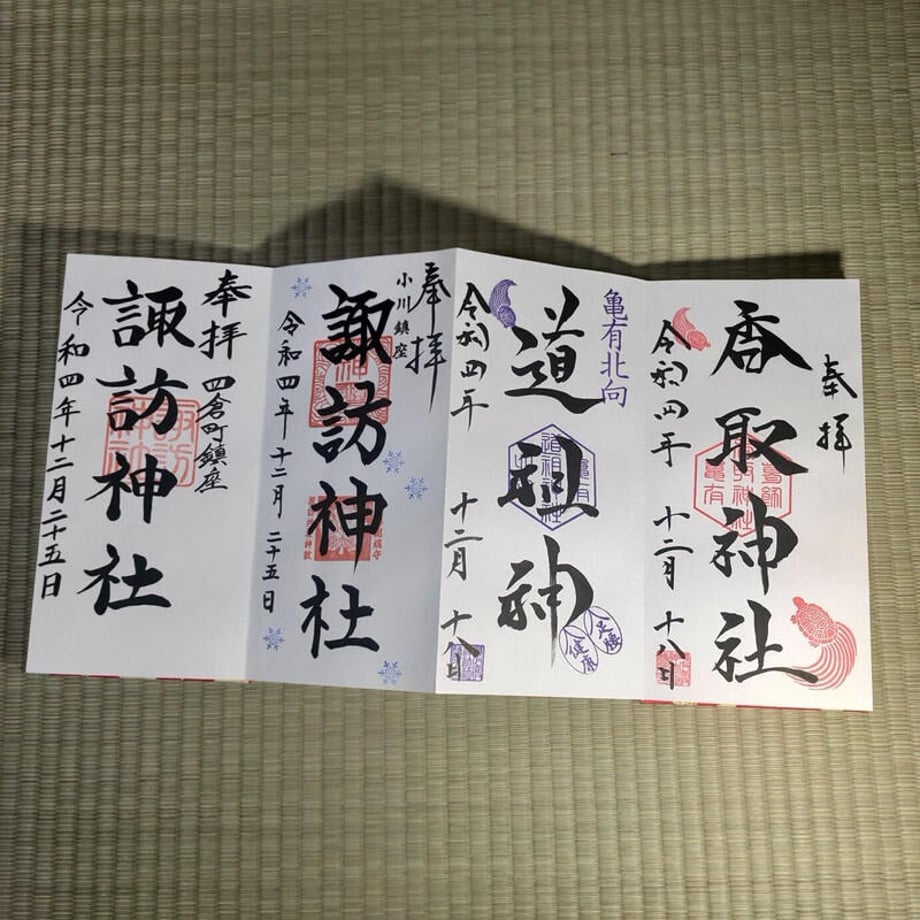 奉拝
香取神社
令和四年 十二月 十八日
亀有
香取神社
亀有北向
道祖神
令和四年 十二月 十八日
亀有
道祖神社
足腰
健康
奉拝
小川鎮座
諏訪神社
令和四年 十二月 二十五日
奉拝
四倉町鎮座
諏訪神社
令和四年十二月二十五日
諏訪
神社